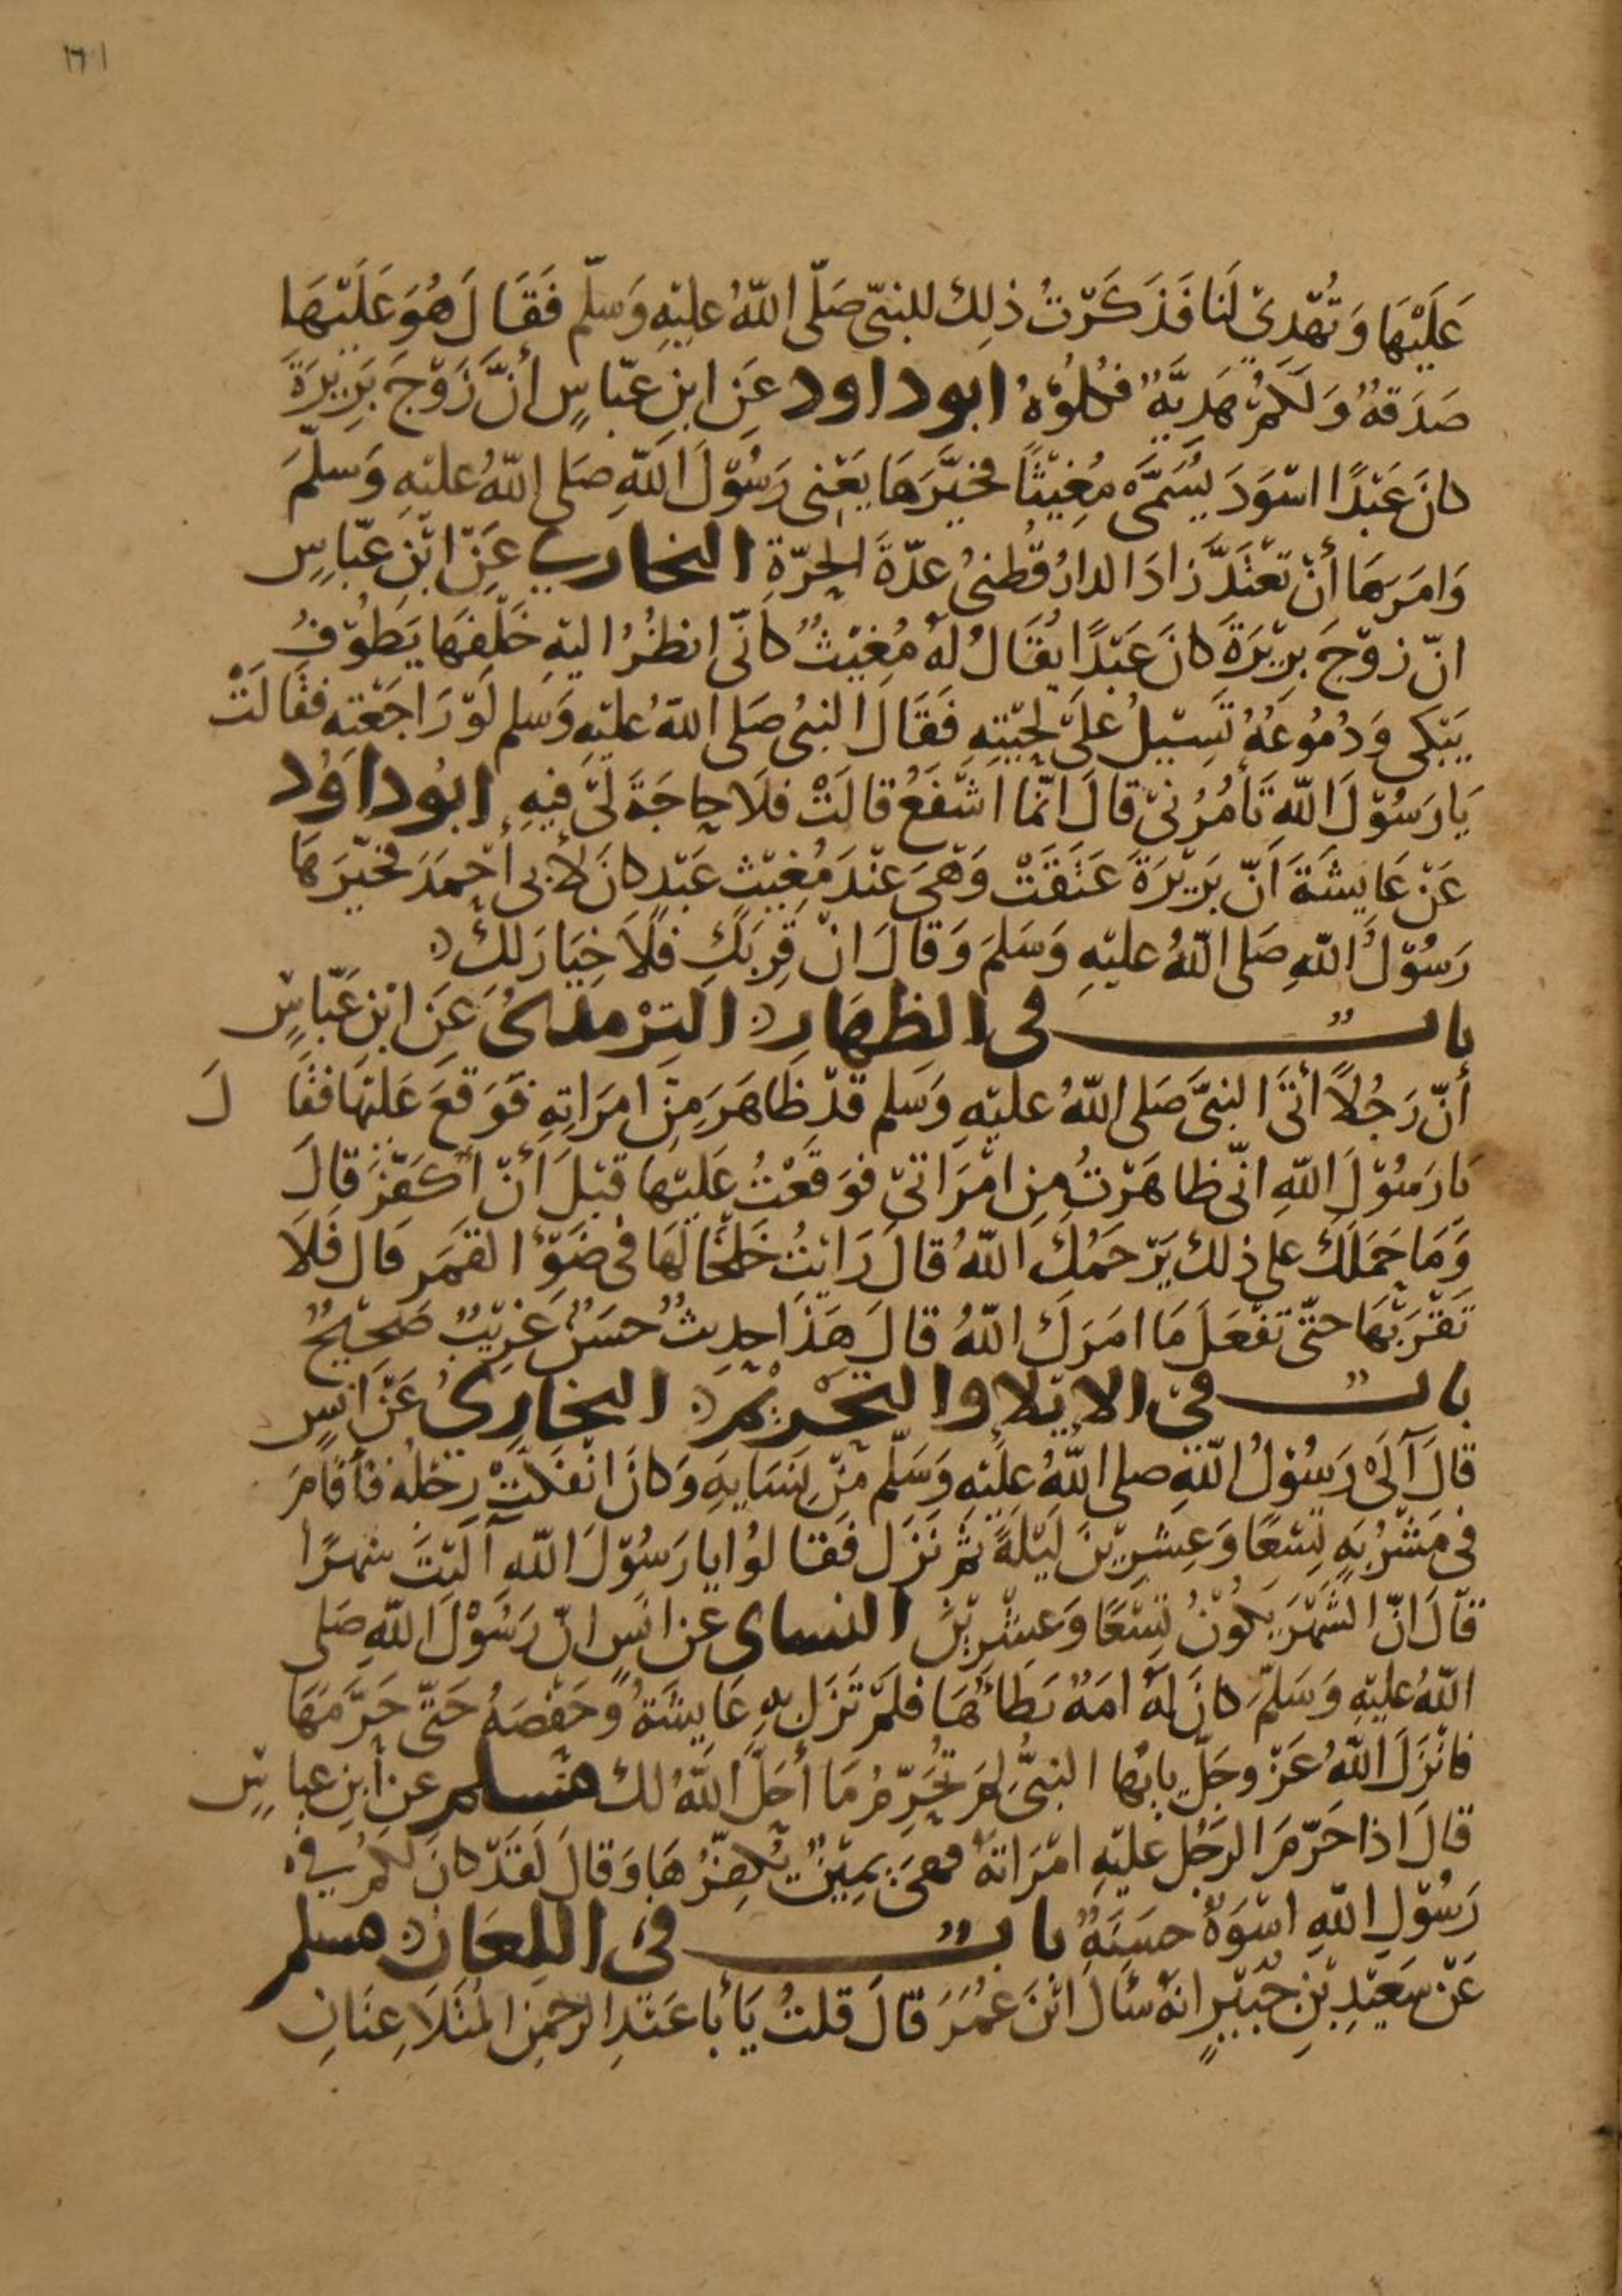 ١٦١
عَلَيْهَا وَتُهْدِىْ لَنَا فَذَكَرْتُ ذٰلِكَ للنبىّ صَلّى اللّهُ عليْهِ وَسَلّم فَقَالَ هُوَ عَلَيْهَا
صَدَقَةٌ وَلَكُمْ هَدِيَّةٌ فَكُلُوْهُ ابوداود عَنِ ابنِ عبّاسٍ أنَّ زَوْجَ بَرِيْرَةَ
كانَ عَبْدًا اسْوَدَ يُسَمَّى مُغِيْثًا فخيَّرَهَا يَعْنِى رَسُوْلَ اللّهِ صَلى اللّهُ عليْهِ وَسلّمَ
وَامَرَهَا أنْ تَعْتَدَّ زَادَ الدارُقُطنىُ عدّةَ الحرّةِ البخارى عَنِ ابْنِ عبّاسٍ
انّ زوْجَ برِيْرَةَ كانَ عَبْدًا يُقَالُ لَهُ مُغِيْثٌ كأنّى انظُرُ اليْهِ خَلْفَهَا يَطُوْفُ
يَبْكى وَدُمُوعُهُ تَسِيْلُ عَلَى لِحْيَتِهِ فَقَالَ النبىُ صَلى اللّهُ عليْهِ وَسلم لَوْ رَاجَعْتِهِ فقَالَتْ
يَا رَسُوْلَ اللّهِ تَأمُرُنىْ قالَ انّمَا اشْفَعُ قالَتْ فلَا حَاجَةَ لِىْ فِيْهِ ابُوداوُد
عَنْ عَايشَةَ اَنّ بَرِيْرَةَ عَتَقَتْ وَهْىَ عنْدَ مُغِيْثٍ عَبْدٍ كانَ لأبى أحْمَدَ فخيّرَهَا
رَسُوْلُ اللّهِ صَلى اللّهُ عليْهِ وَسَلمَ وَقالَ انْ قَرِبَكِ فَلَا خِيَارَ لكِ
باب فى الظِهَارِ الترْمِذىُ عَنِ ابْنِ عَبّاسٍ
أنّ رَجُلاً أتَى النبىَّ صَلى اللّهُ عليْهِ وَسَلم قدْ ظَاهَرَ مِنَ امرَاتِهِ فوَقعَ عَليْهَا فقَالَ
يَا رَسُوْلَ اللّهِ انّى ظاهَرْتُ مِنِ امْرَاتىْ فوَقعْتُ عَليْهَا قبْلَ أنْ أكَفِّرَ قالَ
وَمَا حَمَلَكَ على ذلك يَرْحَمُكَ اللّهُ قالَ رَايْتُ خَلْخَالَهَا فى ضَوْءِ القمَرِ قال فَلَا
تَقْرَبْهَا حتّى تَفْعَلَ مَا امَرَكَ اللّهُ قالَ هَذَا حدِيثٌ حسَنٌ غَرِيْبٌ صَحِيْحٌ
باب فى الايْلا والتحْرِيْمِ البخارِىُ عَنْ أنسٍ
قالَ آلَى رَسُوْلُ اللّهِ صلى اللّهُ علَيْهِ وَسَلّم مِنْ نِسَايهِ وَكانَ انْفَكّتْ رِجْلُهُ فأقامَ
فى مَشْرُبَةٍ تِسْعًا وَعِشرِيْنَ لَيْلَةً ثمّ نَزَلَ فَقالُوا يا رَسُوْلَ اللّهِ آلَيْتَ شهْرًا
قالَ انّ الشَهْرَ يَكُوْنُ تِسْعًا وَعِشْرِيْنَ النساى عن انسٍ انّ رَسُوْلَ اللّهِ صَلى
اللّهُ عليْهِ وَسَلّمَ كانَ لَهُ امَةٌ يَطَاُهَا فلَمْ تَزَلْ بهِ عَايشَةُ وَحَفْصَةُ حَتّى حَرَّمَهَا
فانْزَلَ اللّهُ عَزّ وجَلّ يا أيّها النبىُّ لِمَ تُحَرِّمُ مَا أحَلَّ اللّهُ لكَ مسلم عن ابنِ عباسٍ
قالَ اذا حَرّمَ الرجُلُ عليْهِ امْرَاتهُ فهىَ يَمِيْنٌ يُكفِّرُهَا وَقالَ لَقَدْ كانَ لكُمْ فى
رَسُوْلِ اللّهِ اسْوَةٌ حسَنَةٌ باب فى اللِعَانِ مسلم
عَنْ سَعِيْدِ بْنِ جُبَيْرٍ انهُ سَألَ ابْنَ عُمَرَ قالَ قلتُ يَا أبا عَبْدِ الرحمنِ المُتَلَاعِنَانِ